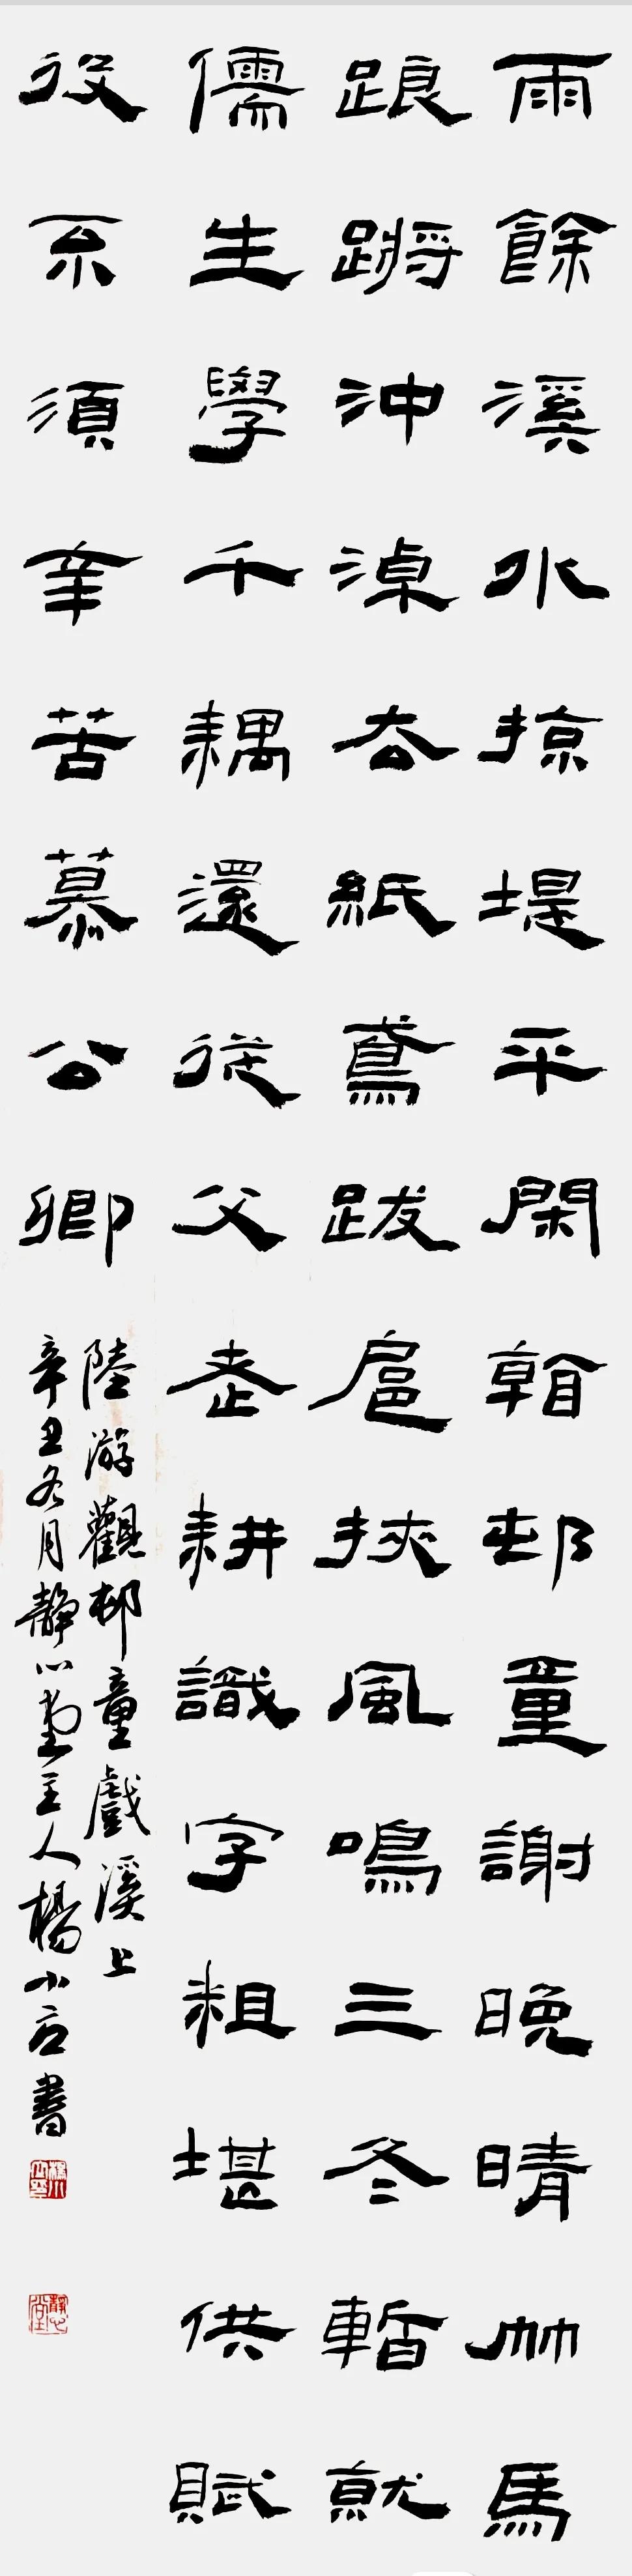 雨餘溪水掠堤平閑看邨童謝晚晴竹馬
踉蹡沖淖去紙鳶跋扈挾風鳴三冬暫就
儒生學千耦還從父老耕識字粗堪供賦
役不須辛苦慕公卿
陸游觀邨童戲溪上
辛丑冬月靜心堂主人楊小石書
靜心堂